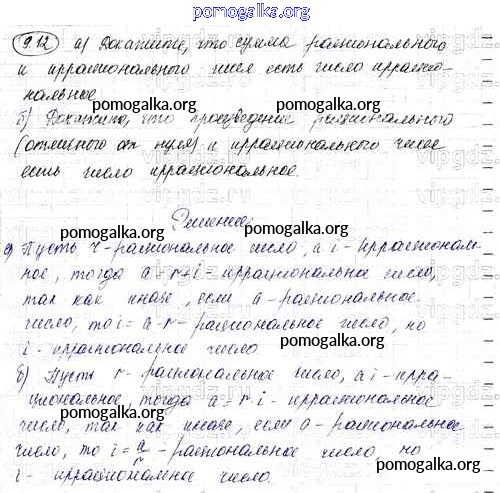 pomogalka.org
9.12 а) Докажите, что сумма рационального
и иррационального чисел есть число иррацио-
нальное.
pomogalka.org
б) Докажите, что произведение рационального
pomogalka.org
(отличного от нуля) и иррационального чисел
есть число иррациональное.
pomogalka.org
Решение
pomogalka.org
а) Пусть r - рациональное число, а i - иррациональ-
ное, тогда a = r + i - иррациональное число,
так как иначе, если a - рациональное
pomogalka.org
число, то i = a - r - рациональное число, но
i - иррациональное число.
pomogalka.org
б) Пусть r - рациональное число, а i - ирра-
циональное, тогда a = r · i - иррациональное
pomogalka.org
число, так как иначе, если a - рациональное
число, то i = a/r - рациональное число, но
pomogalka.org
i - иррациональное число.
pomogalka.org